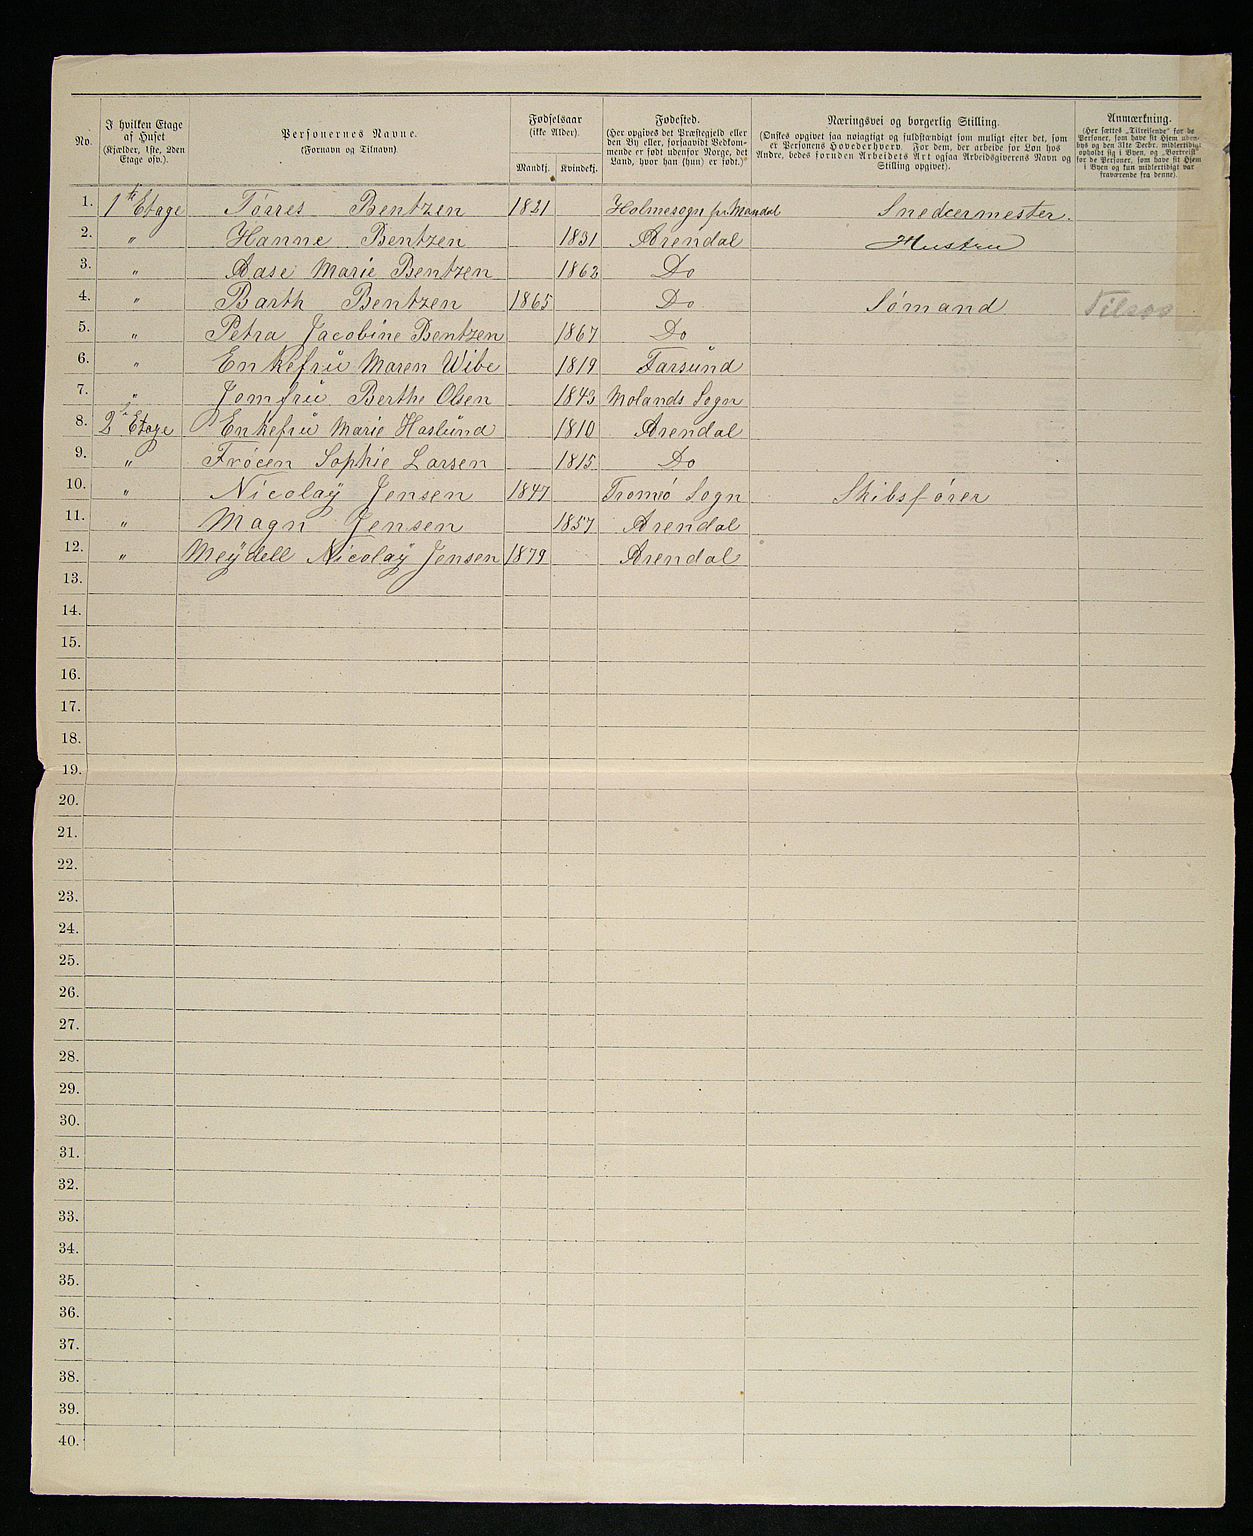 No.
I hvilken Etage af Huset (Kjælder, 1ste, 2den Etage osv.).
Personernes Navne. (Fornavn og Tilnavn).
Fødselsaar (ikke Alder).
Mandkj. Kvindekj.
Fødested. (Her opgives det Præstegjeld eller den By eller, forsaavidt Vedkommende er født udenfor Norge, det Land, hvor han (hun) er født.)
Næringsvei og borgerlig Stilling. (Ønskes opgivet saa nøiagtigt og fuldstændigt som muligt efter det, som er Personens Hovederhverv. For dem, der arbeide for Løn hos Andre, bedes foruden Arbeidets Art ogsaa Arbeidsgiverens Navn og Stilling opgivet).
Anmærkning. (Her sættes „Tilreisende“ for de Personer, som have sit Hjem udenbys og den 31te Decbr. midlertidigt opholdt sig i Byen, og „Bortreist“ for de Personer, som have sit Hjem i Byen og kun midlertidigt var fraværende fra denne).
1. 1ste Etage Törres Bentzen 1821 Holmesogn pr. Mandal Snedcermester.
2. „ Hanne Bentzen 1831 Arendal Hustru
3. „ Aase Marie Bentzen 1862 Do
4. „ Barth Bentzen 1865 Do Sømand
5. „ Petra Jacobine Bentzen 1867 Do
6. „ Enkefrü Maren Wibe 1819 Farsünd
7. „ Jomfrü Berthe Olsen 1843 Molands Sogn
8. 2 Etage Enkefrü Marie Haslünd 1810 Arendal
9. „ Frøcen Sophie Larsen 1815 Do
10. „ Nicolaÿ Jensen 1847 Tromö Sogn Skibsfører
11. „ Magn Jensen 1857 Arendal
12. „ Meÿdell Nicolaÿ Jensen 1879 Arendal
13.
14.
15.
16.
17.
18.
19.
20.
21.
22.
23.
24.
25.
26.
27.
28.
29.
30.
31.
32.
33.
34.
35.
36.
37.
38.
39.
40.